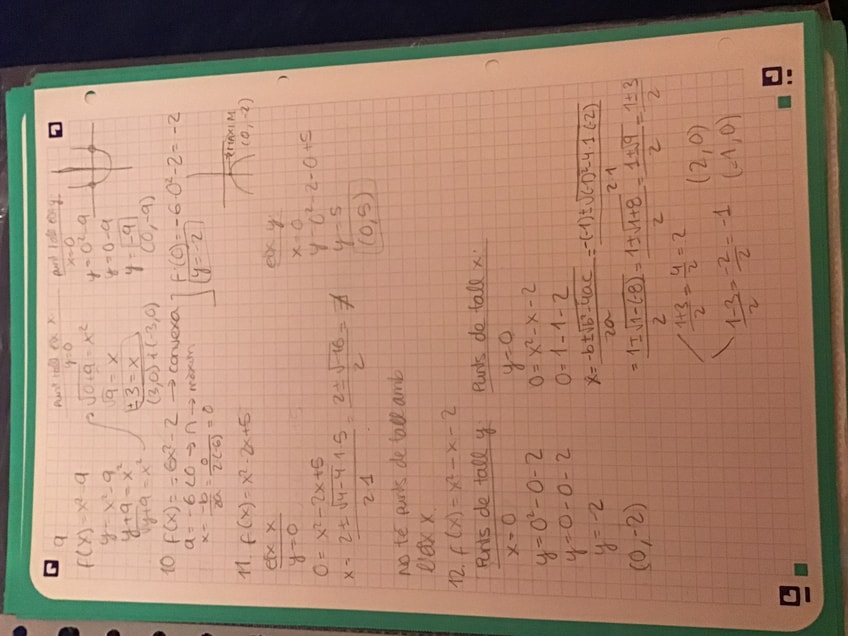 9
f(x) = x²-9
y = x²-9
y+9 = x²
√y+9 = √x²
y=0
√0+9 = x²
√9 = x
±3 = x
(3,0) i (-3,0)
x=0
y = 0²-9
y = 0-9
y = -9
(0,-9)
10. f(x) = -6x²-2 → convexa
a = -6 < 0 → ∩ → màxim
x = -b/2a = 0/2(-6) = 0
f(0) = -6·0²-2 = -2
y = -2
màxim
(0,-2)
11. f(x) = x²-2x+5
eix x
y=0
0 = x²-2x+5
x = 2±√4-4·1·5 / 2·1 = 2±√-16 / 2 = ∄
no té punts de tall amb
l'eix x.
eix y
x=0
y=0²-2·0+5
y=5
(0,5)
12. f(x) = x²-x-2
Punts de tall y
x=0
y=0²-0-2
y=0-0-2
y=-2
(0,-2)
Punts de tall x:
y=0
0 = x²-x-2
0 = 1-1-2
x = -b±√b²-4ac / 2a = -(-1)±√(-1)²-4·1·(-2) / 2·1
= 1±√1-(-8) / 2 = 1±√1+8 / 2 = 1±√9 / 2 = 1±3 / 2
1+3 / 2 = 4/2 = 2 (2,0)
1-3 / 2 = -2/2 = -1 (-1,0)